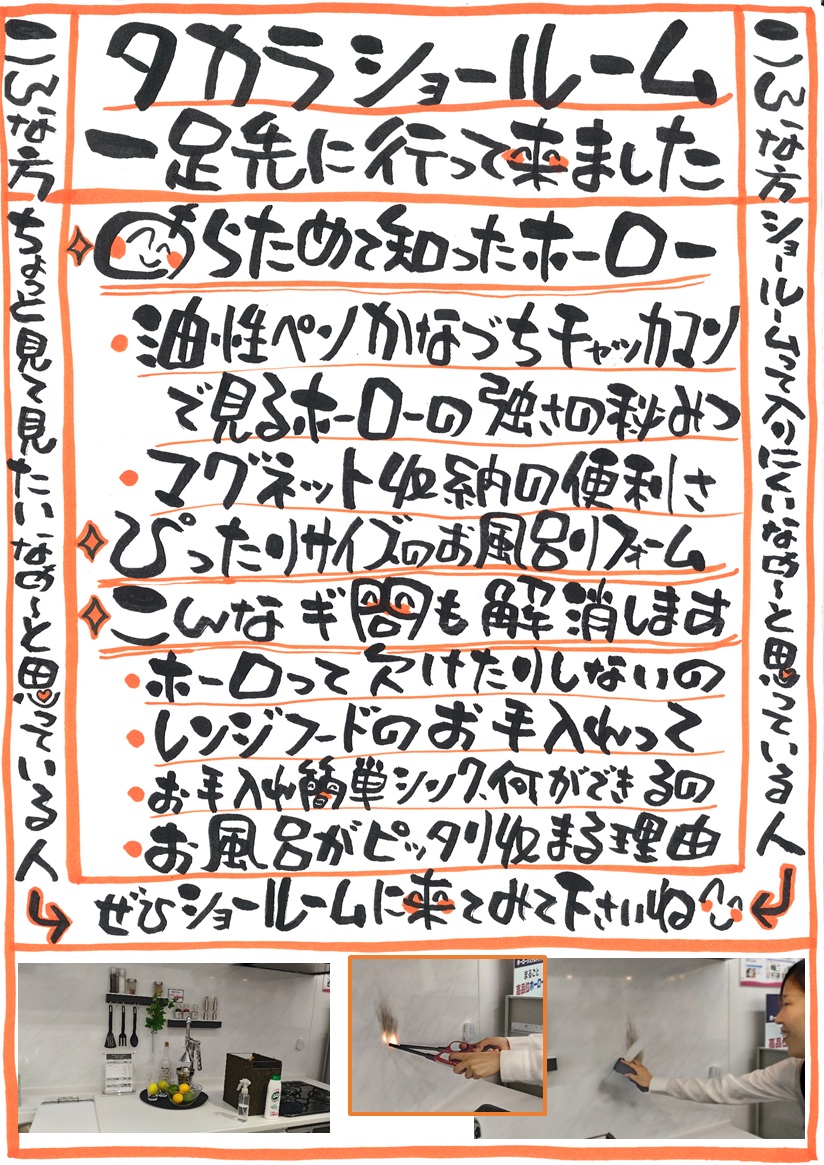 タカラショールーム
一足先に行って来ました
こんな方
ショールームって入りにくいなぁ〜と思っている人
こんな方
ちょっと見て見たいなぁ〜と思っている人
あらためて知ったホーロー
・油性ペンかなづちチャッカマン
で見るホーローの強さの秘みつ
・マグネット収納の便利さ
ぴったりサイズのお風呂リフォーム
こんなギ問も解消します
・ホーロって欠けたりしないの
・レンジフードのお手入れって
・お手入れ簡単シンク、何ができるの
・お風呂がピッタリ収まる理由
ぜひショールームに来てみて下さいね
まるごと
高品位ホーロー
高品位ホーロー